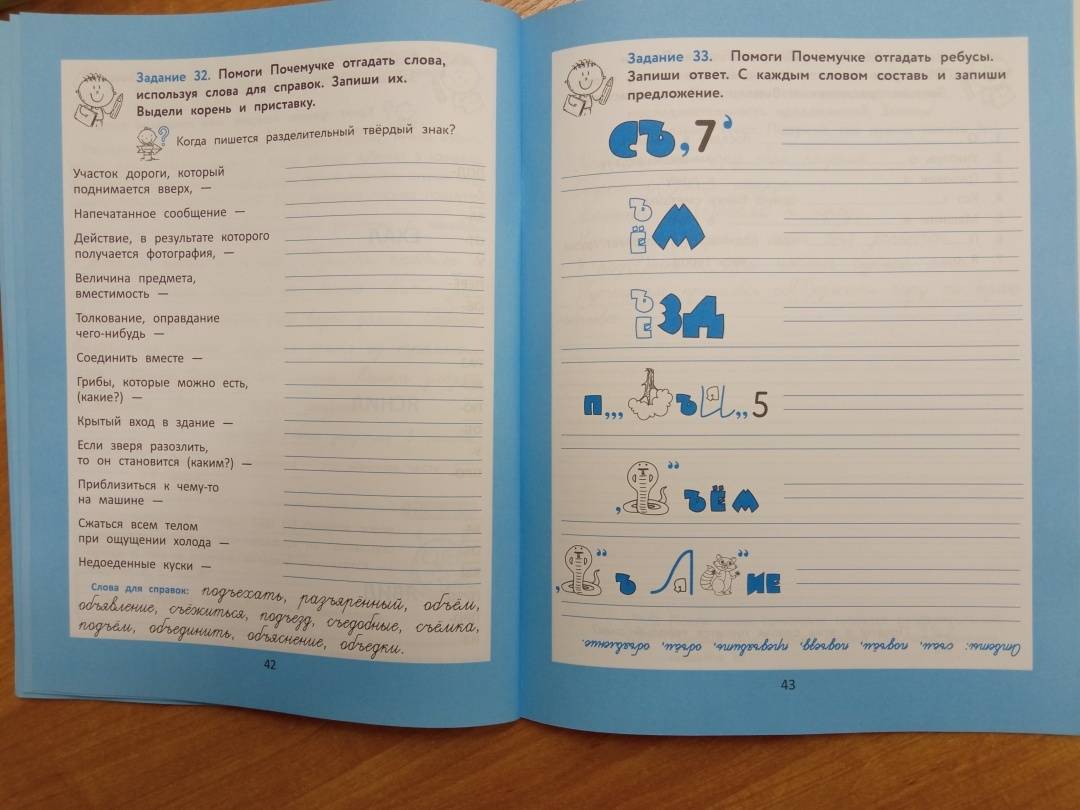 Задание 32. Помоги Почемучке отгадать слова,
используя слова для справок. Запиши их.
Выдели корень и приставку.
Когда пишется разделительный твёрдый знак?
Участок дороги, который
поднимается вверх, —
Напечатанное сообщение —
Действие, в результате которого
получается фотография, —
Величина предмета,
вместимость —
Толкование, оправдание
чего-нибудь —
Соединить вместе —
Грибы, которые можно есть,
(какие?) —
Крытый вход в здание —
Если зверя разозлить,
то он становится (каким?) —
Приблизиться к чему-то
на машине —
Сжаться всем телом
при ощущении холода —
Недоеденные куски —
Слова для справок: подъехать, разъярённый, объём,
объявление, съёжиться, подъезд, съедобные, съёмка,
подъём, объединить, объяснение, объедки.
42
Задание 33. Помоги Почемучке отгадать ребусы.
Запиши ответ. С каждым словом составь и запиши
предложение.
СЪ,7’
Ъ
Ё М
Ъ
Е ЗД
П,,, Ъ И Я ,,5
, ’’ ЪЁМ
, ’’ Ъ Л Я ’’ ИЕ
Ответы: съем, подъём, подъезд, предъявить, объём, объявление.
43